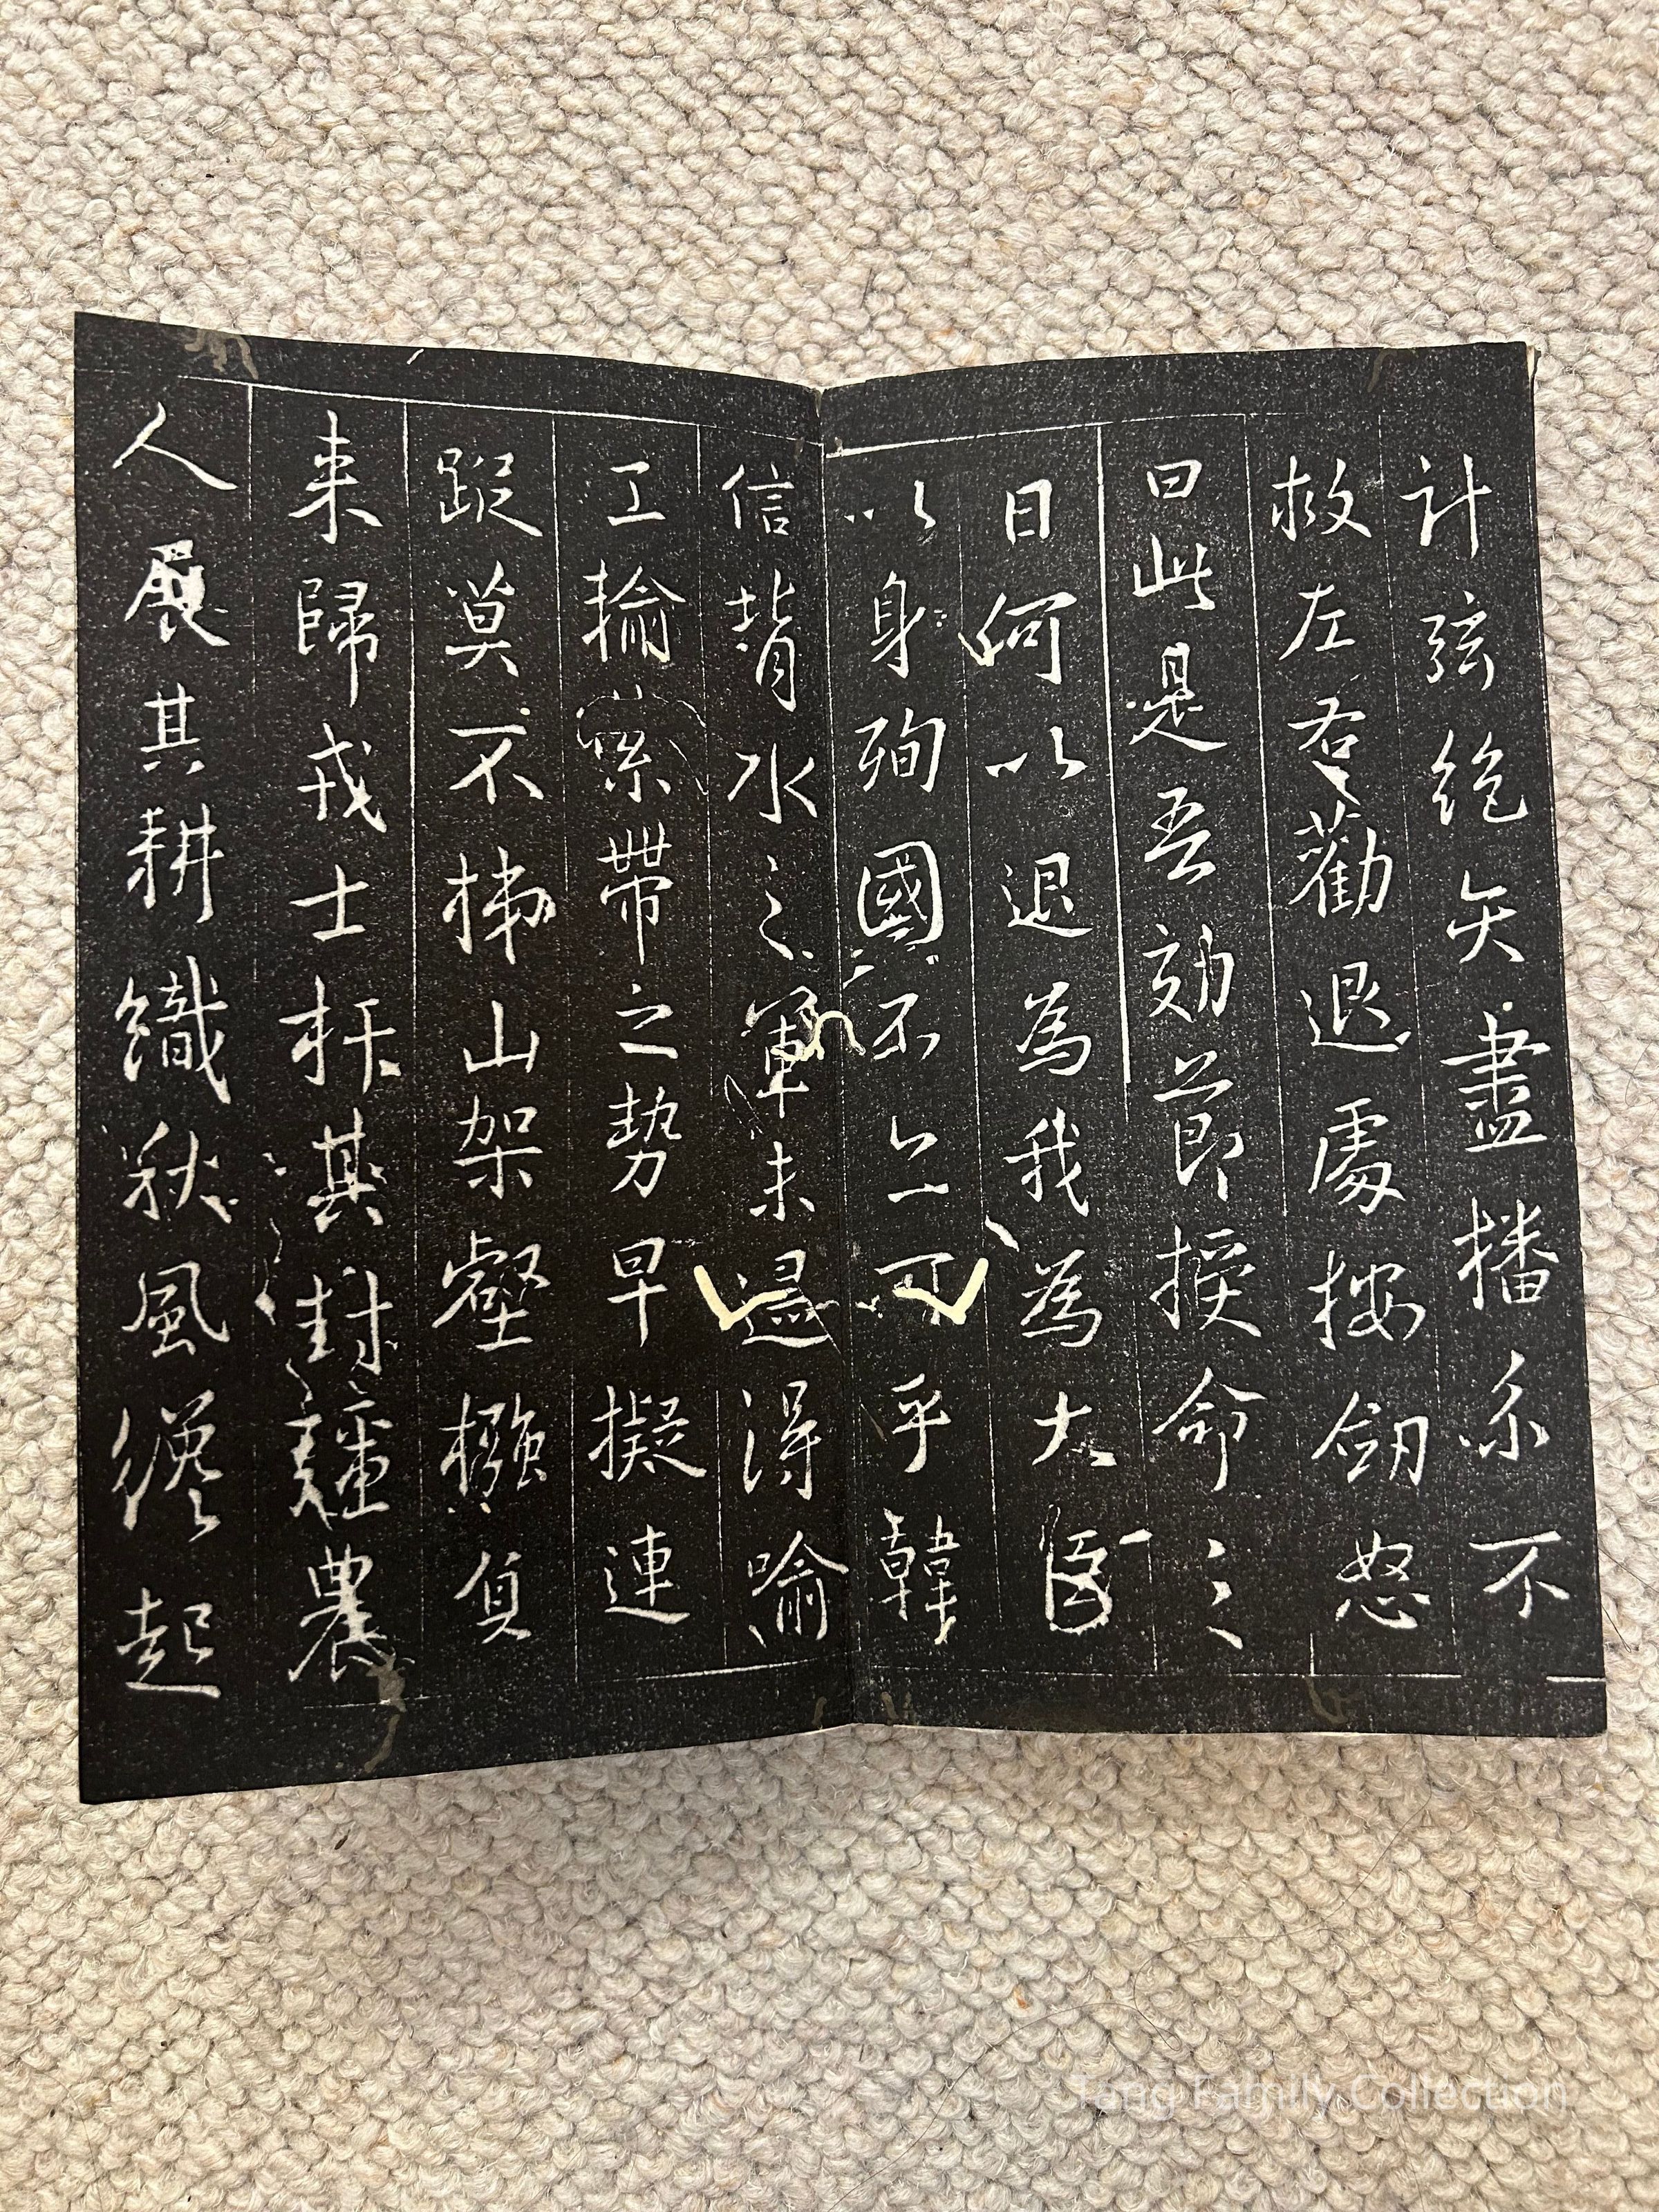 計弦絕矢盡播系不
救左右勸退處按劒怒
曰此是吾効節授命之
日何以退為我為大臣
以身殉國不亦可乎韓
信背水之軍未遑得喻
工輸縈帶之勢早擬連
蹤莫不梯山架壑襁負
来歸戎士扞其封疆農
人展其耕織秋風纔起
Tang Family Collection